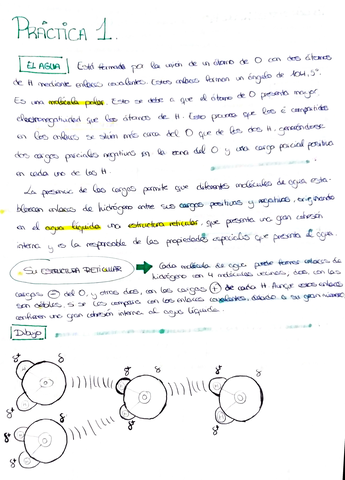 PRÁCTICA 1.
EL AGUA Está formada por la unión de un átomo de O con dos átomos
de H mediante enlaces covalentes. Estos enlaces forman un ángulo de 104,5°.
Es una molécula polar. Esto se debe a que el átomo de O presenta mayor
electronegatividad que los átomos de H. Esto provoca que los e⁻ compartidos
en los enlaces se sitúen más cerca del O que de los dos H, generándose
dos cargas parciales negativas en la zona del O y una carga parcial positiva
en cada uno de los H.
La presencia de las cargas permite que diferentes moléculas de agua esta-
blezcan enlaces de hidrógeno entre sus cargas positivas y negativas, originando
en el agua líquida una estructura reticular, que presenta una gran cohesión
interna y es la responsable de las propiedades especiales que presenta el agua.
SU ESTRUCTURA RETICULAR → Cada molécula de agua puede formar enlaces de
hidrógeno con 4 moléculas vecinas, dos, con las
cargas - del O, y otros dos, con las cargas + de cada H. Aunque estos enlaces
son débiles si se les compara con los enlaces covalentes, debido a su gran número
confieren una gran cohesión interna al agua líquida.
Dibujo
δ+ δ- δ- δ-
δ+ δ- δ+ δ+
δ+